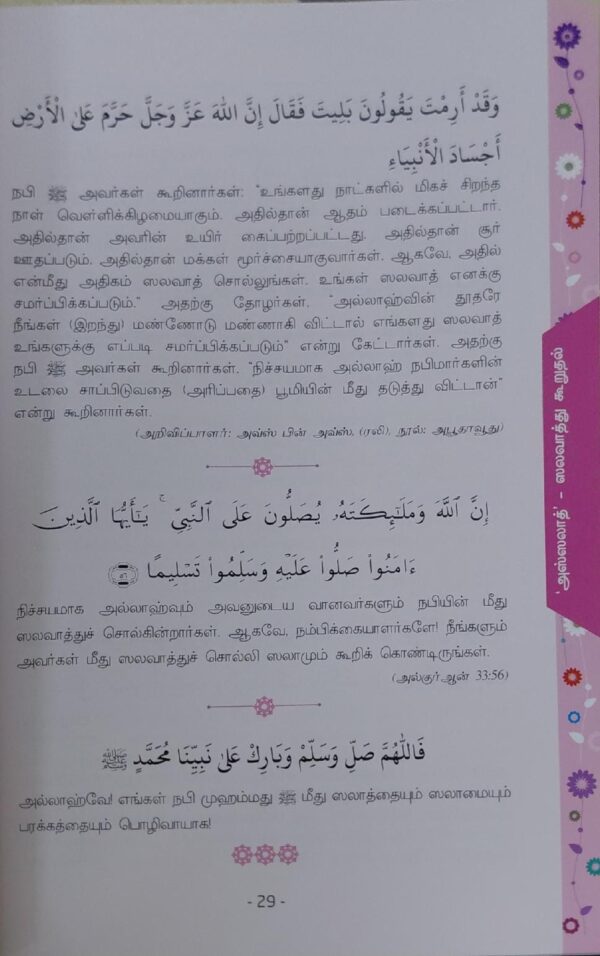 وَقَدْ أَرِمْتَ يَقُولُونَ بَلِيتَ فَقَالَ إِنَّ اللهَ عَزَّ وَجَلَّ حَرَّمَ عَلَى الْأَرْضِ
أَجْسَادَ الْأَنْبِيَاءِ
நபி ﷺ அவர்கள் கூறினார்கள்: “உங்களது நாட்களில் மிகச் சிறந்த
நாள் வெள்ளிக்கிழமையாகும். அதில்தான் ஆதம் படைக்கப்பட்டார்.
அதில்தான் அவரின் உயிர் கைப்பற்றப்பட்டது. அதில்தான் சூர்
ஊதப்படும். அதில்தான் மக்கள் மூர்ச்சையாகுவார்கள். ஆகவே, அதில்
என்மீது அதிகம் ஸலவாத் சொல்லுங்கள். உங்கள் ஸலவாத் எனக்கு
சமர்ப்பிக்கப்படும்.” அதற்கு தோழர்கள், “அல்லாஹ்வின் தூதரே
நீங்கள் (இறந்து) மண்ணோடு மண்ணாகி விட்டால் எங்களது ஸலவாத்
உங்களுக்கு எப்படி சமர்ப்பிக்கப்படும்” என்று கேட்டார்கள். அதற்கு
நபி ﷺ அவர்கள் கூறினார்கள். “நிச்சயமாக அல்லாஹ் நபிமார்களின்
உடலை சாப்பிடுவதை (அரிப்பதை) பூமியின் மீது தடுத்து விட்டான்”
என்று கூறினார்கள்.
(அறிவிப்பாளர்: அவ்ஸ் பின் அவ்ஸ், (ரலி), நூல்: அபூதாவூது)
إِنَّ اللَّهَ وَمَلَٰٓئِكَتَهُۥ يُصَلُّونَ عَلَى النَّبِيِّ ۚ يَٰٓأَيُّهَا الَّذِينَ
ءَامَنُوا۟ صَلُّوا۟ عَلَيْهِ وَسَلِّمُوا۟ تَسْلِيمًا ﴿٥٦﴾
நிச்சயமாக அல்லாஹ்வும் அவனுடைய வானவர்களும் நபியின் மீது
ஸலவாத்துச் சொல்கின்றார்கள். ஆகவே, நம்பிக்கையாளர்களே! நீங்களும்
அவர்கள் மீது ஸலவாத்துச் சொல்லி ஸலாமும் கூறிக் கொண்டிருங்கள்.
(அல்குர்ஆன் 33:56)
فَاللّٰهُمَّ صَلِّ وَسَلِّمْ وَبَارِكْ عَلَى نَبِيِّنَا مُحَمَّدٍ ﷺ
அல்லாஹ்வே! எங்கள் நபி முஹம்மது ﷺ மீது ஸலாத்தையும் ஸலாமையும்
பரக்கத்தையும் பொழிவாயாக!
- 29 -
‘அஸ்ஸலாத்’ - ஸலவாத்து கூறுதல்